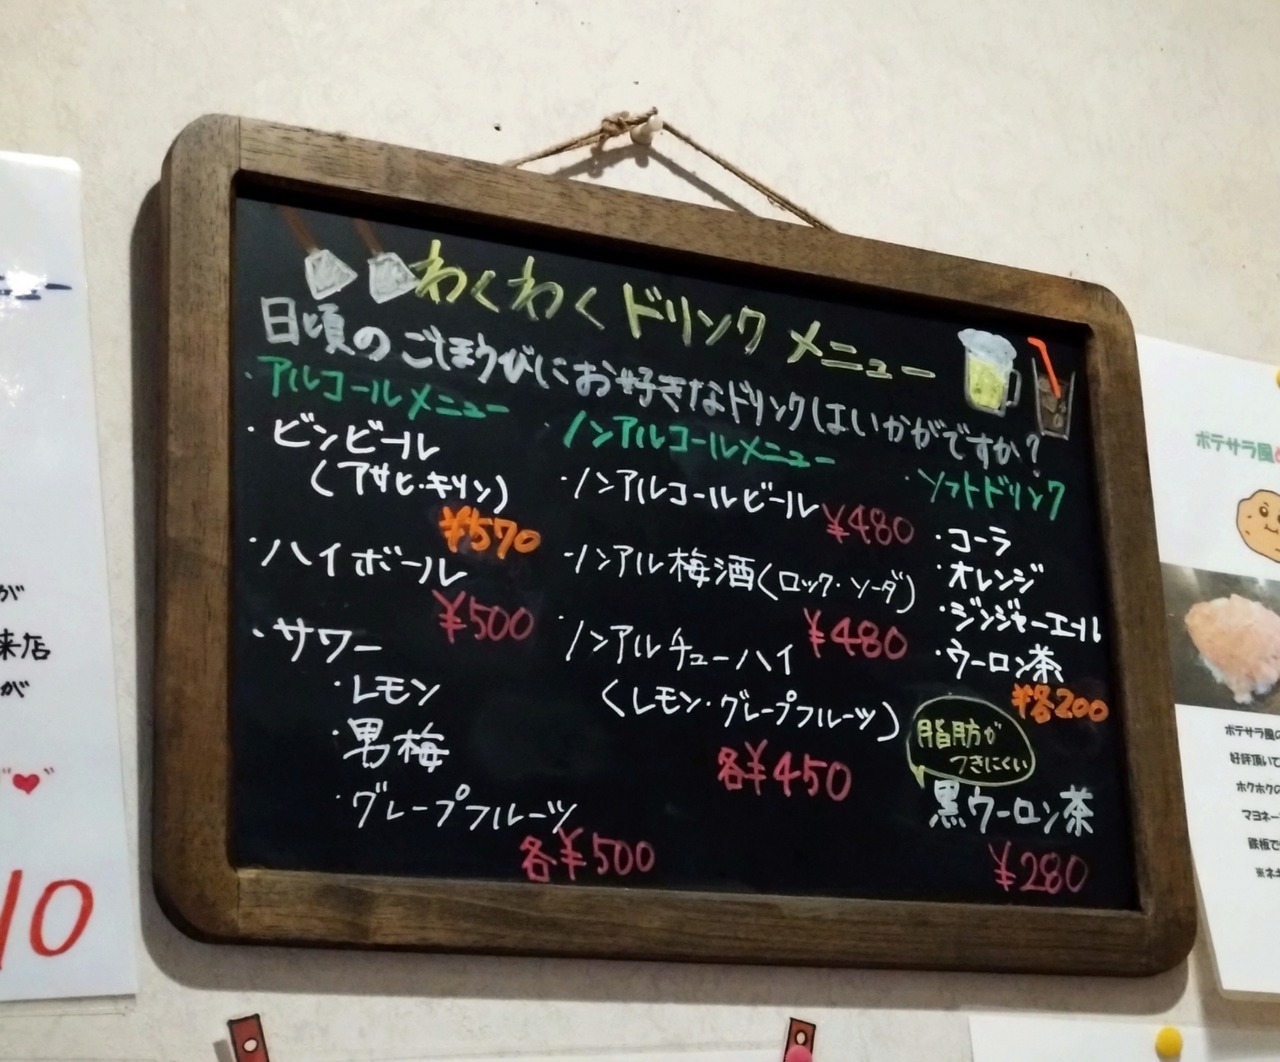 わくわくドリンクメニュー
日頃のごほうびにお好きなドリンクはいかがですか?
・アルコールメニュー
・ビンビール
(アサヒ・キリン)
¥570
・ハイボール
¥500
・サワー
・レモン
・男梅
・グレープフルーツ
各¥500
・ノンアルコールメニュー
・ノンアルコールビール
¥480
・ノンアル梅酒(ロック・ソーダ)
¥480
・ノンアルチューハイ
(レモン・グレープフルーツ)
各¥450
・ソフトドリンク
・コーラ
・オレンジ
・ジンジャーエール
・ウーロン茶
¥各200
脂肪が
つきにくい
黒ウーロン茶
¥280
が
来店
が
10
ポテサラ風
ポテサラ風の
好評頂いて
ホクホクの
マヨネー
鉄板で
※ネギ